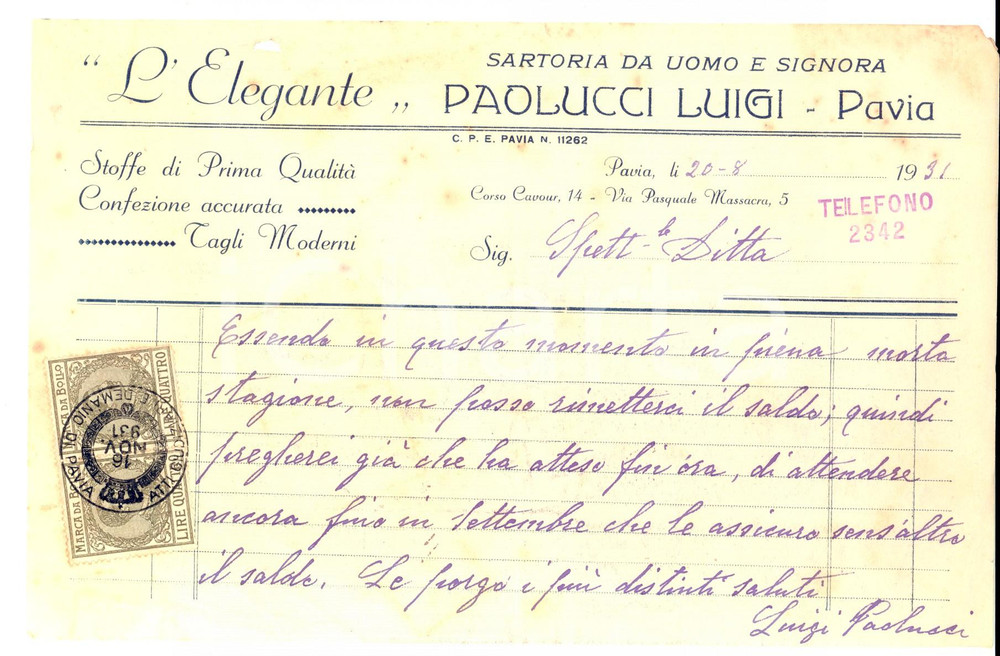 SARTORIA DA UOMO E SIGNORA
“ L'Elegante „ PAOLUCCI LUIGI - Pavia
C. P. E. PAVIA N. 11262
Stoffe di Prima Qualità
Confezione accurata
Tagli Moderni
Pavia, li 20-8 1931
Corso Cavour, 14 - Via Pasquale Massacra, 5
TELEFONO
2342
Sig. Spett-le Ditta
Essendo in questo momento in piena morta
stagione, non posso rimetterci il saldo; quindi
pregherei già che ha atteso fin'ora, di attendere
ancora fino in Settembre che le assicuro sens'altro
il saldo. Le porgo i più distinti saluti
Luigi Paolucci
MARCA DA BOLLO
LIRE QUATTRO
DEMANIO DI PAVIA
ATTI
16
NOV
931